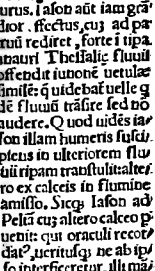 urus. iason aūt iam grā
dior. ffectus, cuȝ ad pa
ruū rediret, forte i ripa
anauri Thessalię fluuii
offendit iunonē uetulæ
simile: q̄ uidebat uelle q
dē fluuū trāsire sed nō
audere. Quod uidēs ia/
son illam humeris suscī
piens in ulteriorem flu
uii ripam transtulit: alte/
ro ex calceis in flumine
amisso. Sicq; Iason ad
Peliū cuȝ altero calceo p
uenit: qui oraculi recor/
dat⁹, ueritusq; ne ab ip/
so interficeretur, illi mā